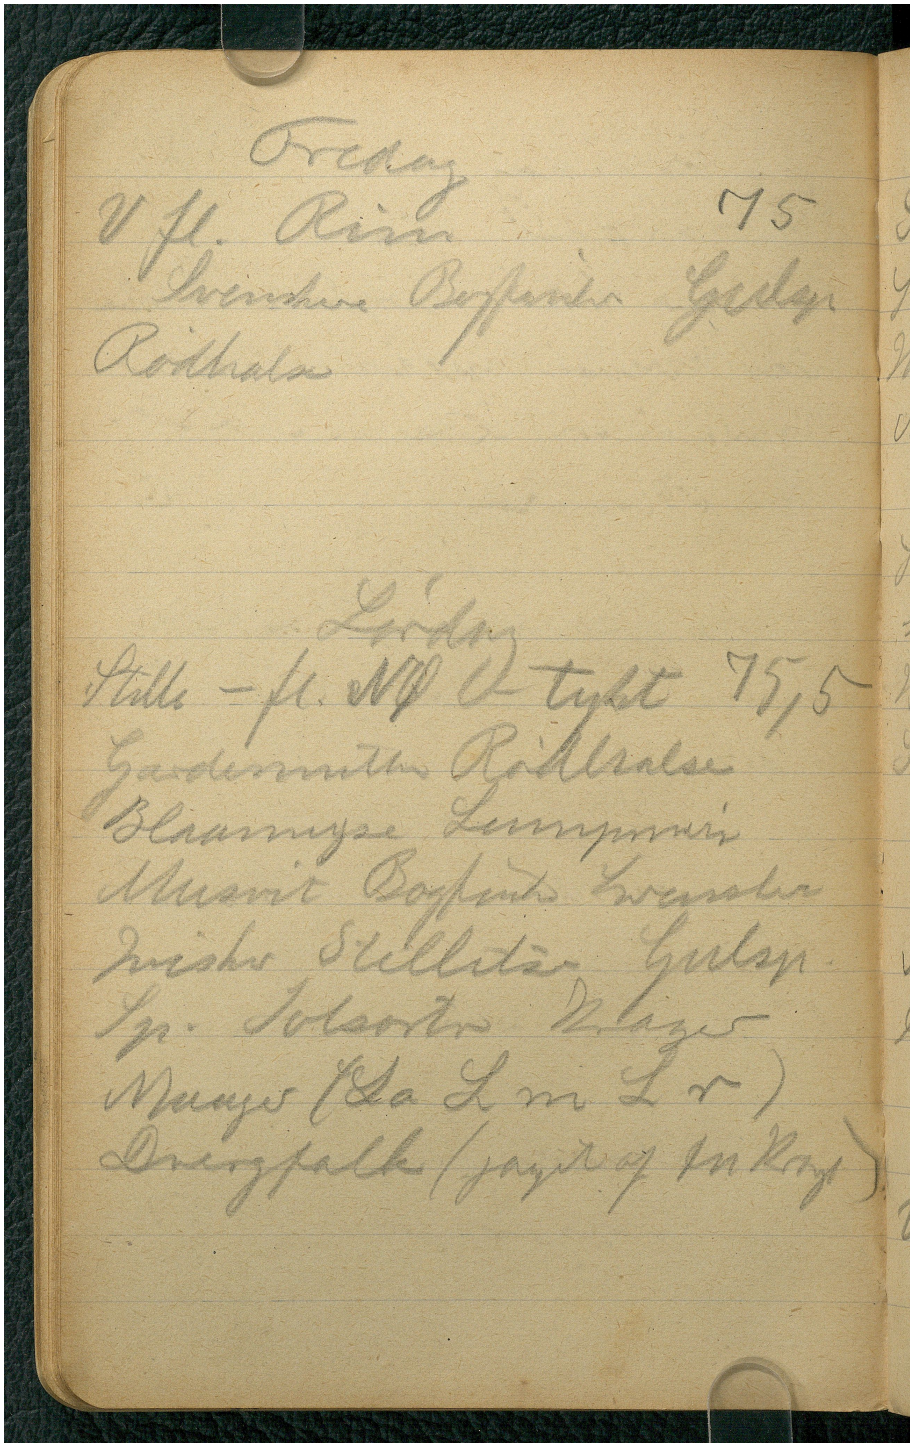 Fredag
V fl. Rim 75
Svenskere Bogfinker Gulsp.
Rødhalse
Lørdag
Stille – fl. NØ tykt 75,5
Gærdesmutter Rødhalse
Blaamejse
Musvit Bogfinke Svensker
Irisker Stillitser Gulsp.
Sp. Solsorter Krager
Maager (La L m L r)
Dværgfalk (jaget af en Krage)